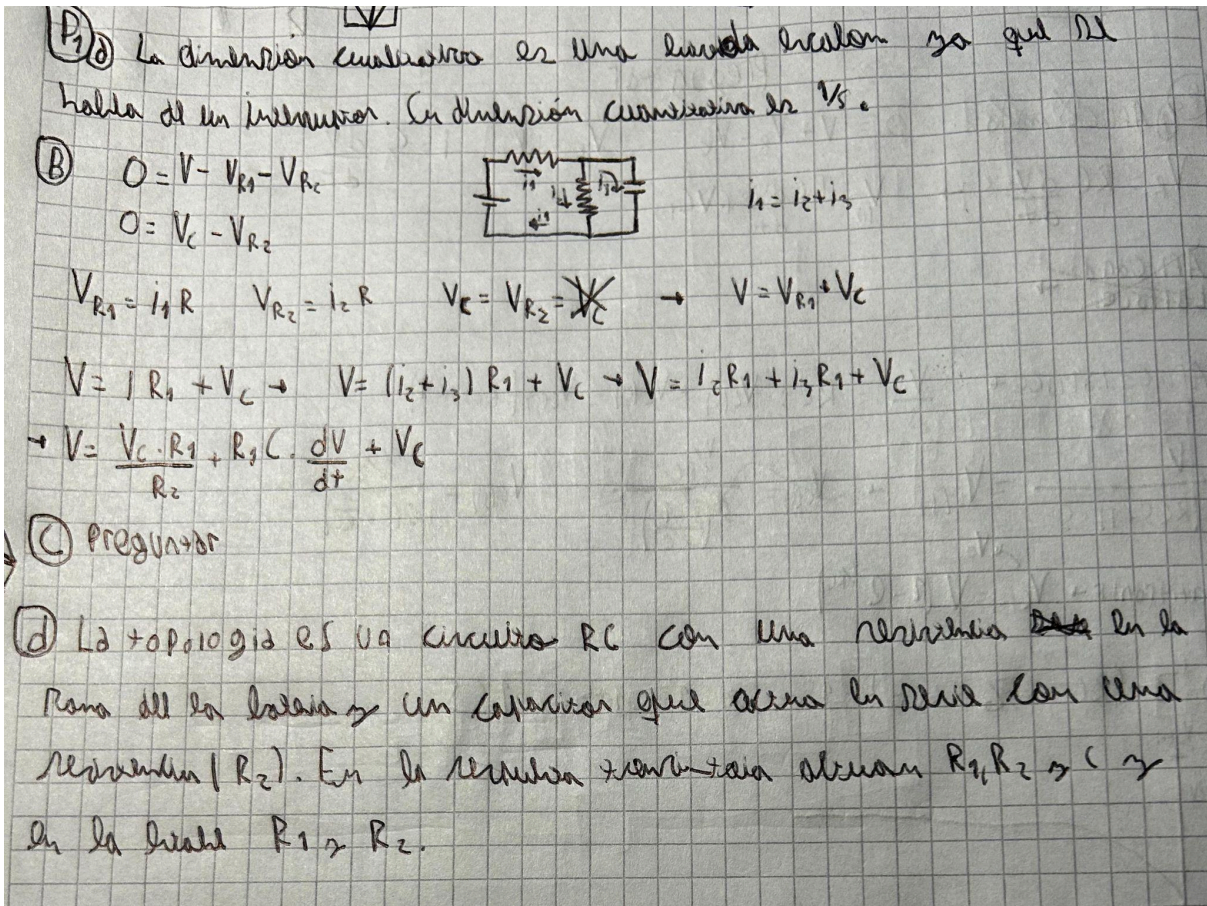 P1 a) La dimensión cualitativa es una entrada escalon ya que se
habla de un interruptor. Su dimensión cuantitativa es 1/s.
B) 0 = V - V_R1 - V_Rc
i1 i2 i3 i1
i1 = i2 + i3
0 = Vc - V_R2
V_R1 = i1 R V_R2 = i2 R Vc = V_R2 = Vc → V = V_R1 + Vc
V = I R1 + Vc → V = (i2 + i3) R1 + Vc → V = i2 R1 + i3 R1 + Vc
→ V = Vc · R1 / R2 + R1 C · dV/dt + Vc
C) Preguntar
d) La topologia es un circuito RC con una resistencia en la
Rama de la bateria y un capacitor que actua en serie con una
resistencia (R2). En la respuesta transitoria actuan R1, R2 y C y
en la estable R1 y R2.